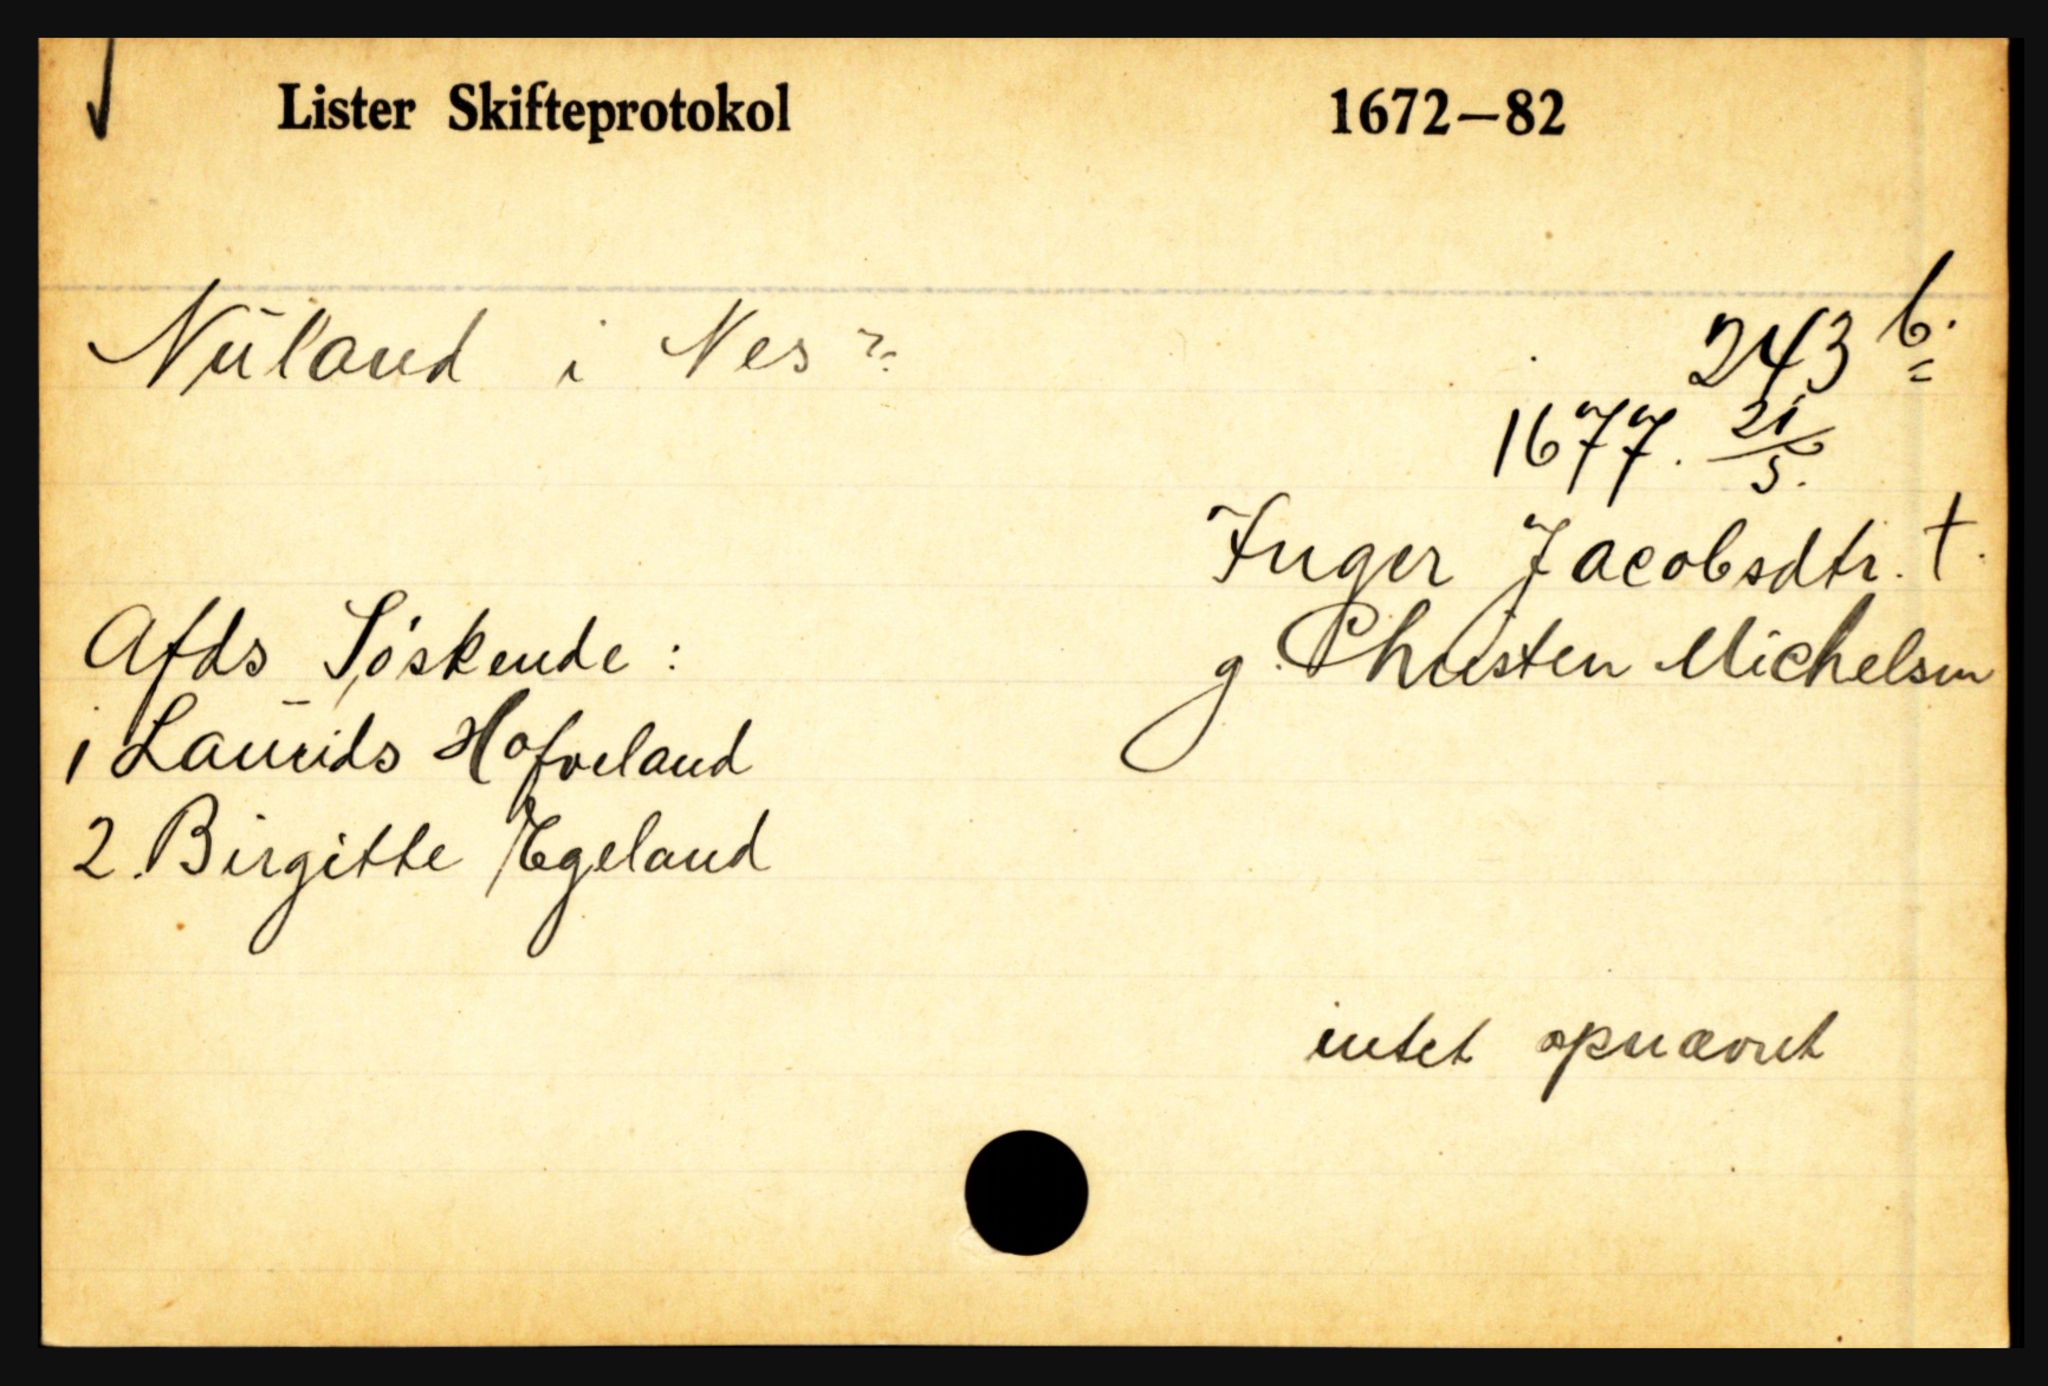 Lister Skifteprotokol 1672—82
Nuland i Nes ?
243 b.
1677. 21/5.
Inger Jacobsdtr. †.
g. Christen Michelsen
Afds Söskende :
1 Laurids Hofveland
2. Birgitte Egeland
intet opnævnt